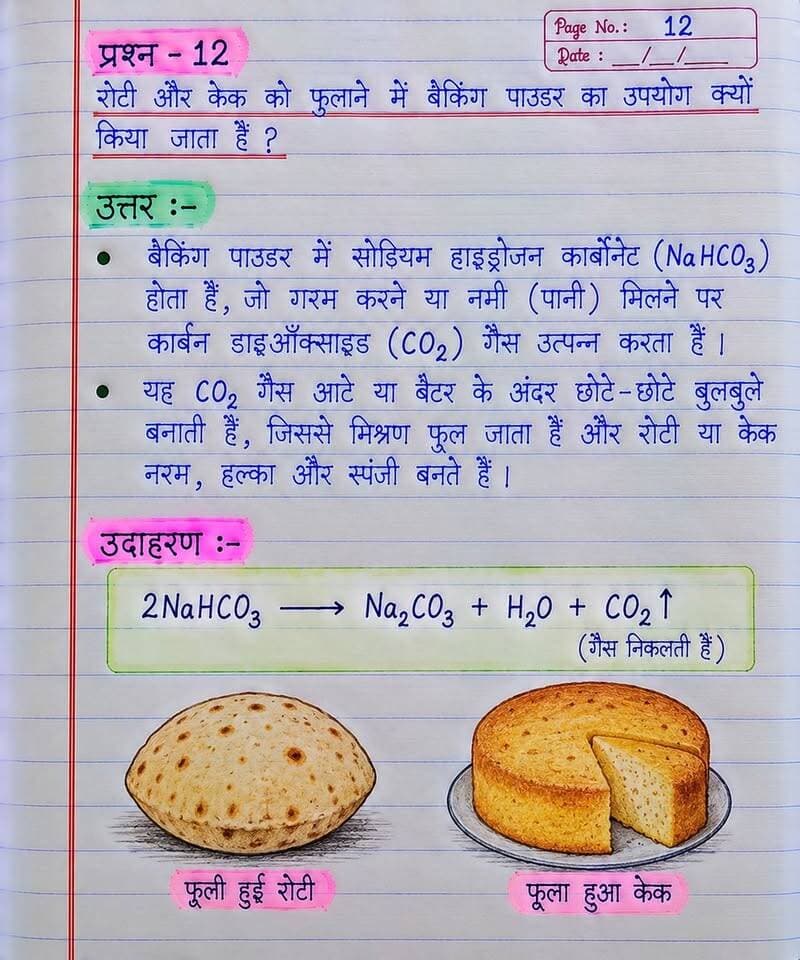 Page No.: 12
Date : __/__/____
प्रश्न - 12
रोटी और केक को फुलाने में बैकिंग पाउडर का उपयोग क्यों
किया जाता हैं ?
उत्तर :-
• बैकिंग पाउडर में सोडियम हाइड्रोजन कार्बोनेट (NaHCO₃)
होता हैं, जो गरम करने या नमी (पानी) मिलने पर
कार्बन डाइऑक्साइड (CO₂) गैस उत्पन्न करता हैं।
• यह CO₂ गैस आटे या बैटर के अंदर छोटे-छोटे बुलबुले
बनाती हैं, जिससे मिश्रण फूल जाता हैं और रोटी या केक
नरम, हल्का और स्पंजी बनते हैं।
उदाहरण :-
2NaHCO₃ ⟶ Na₂CO₃ + H₂O + CO₂↑
(गैस निकलती हैं)
फूली हुई रोटी
फूला हुआ केक